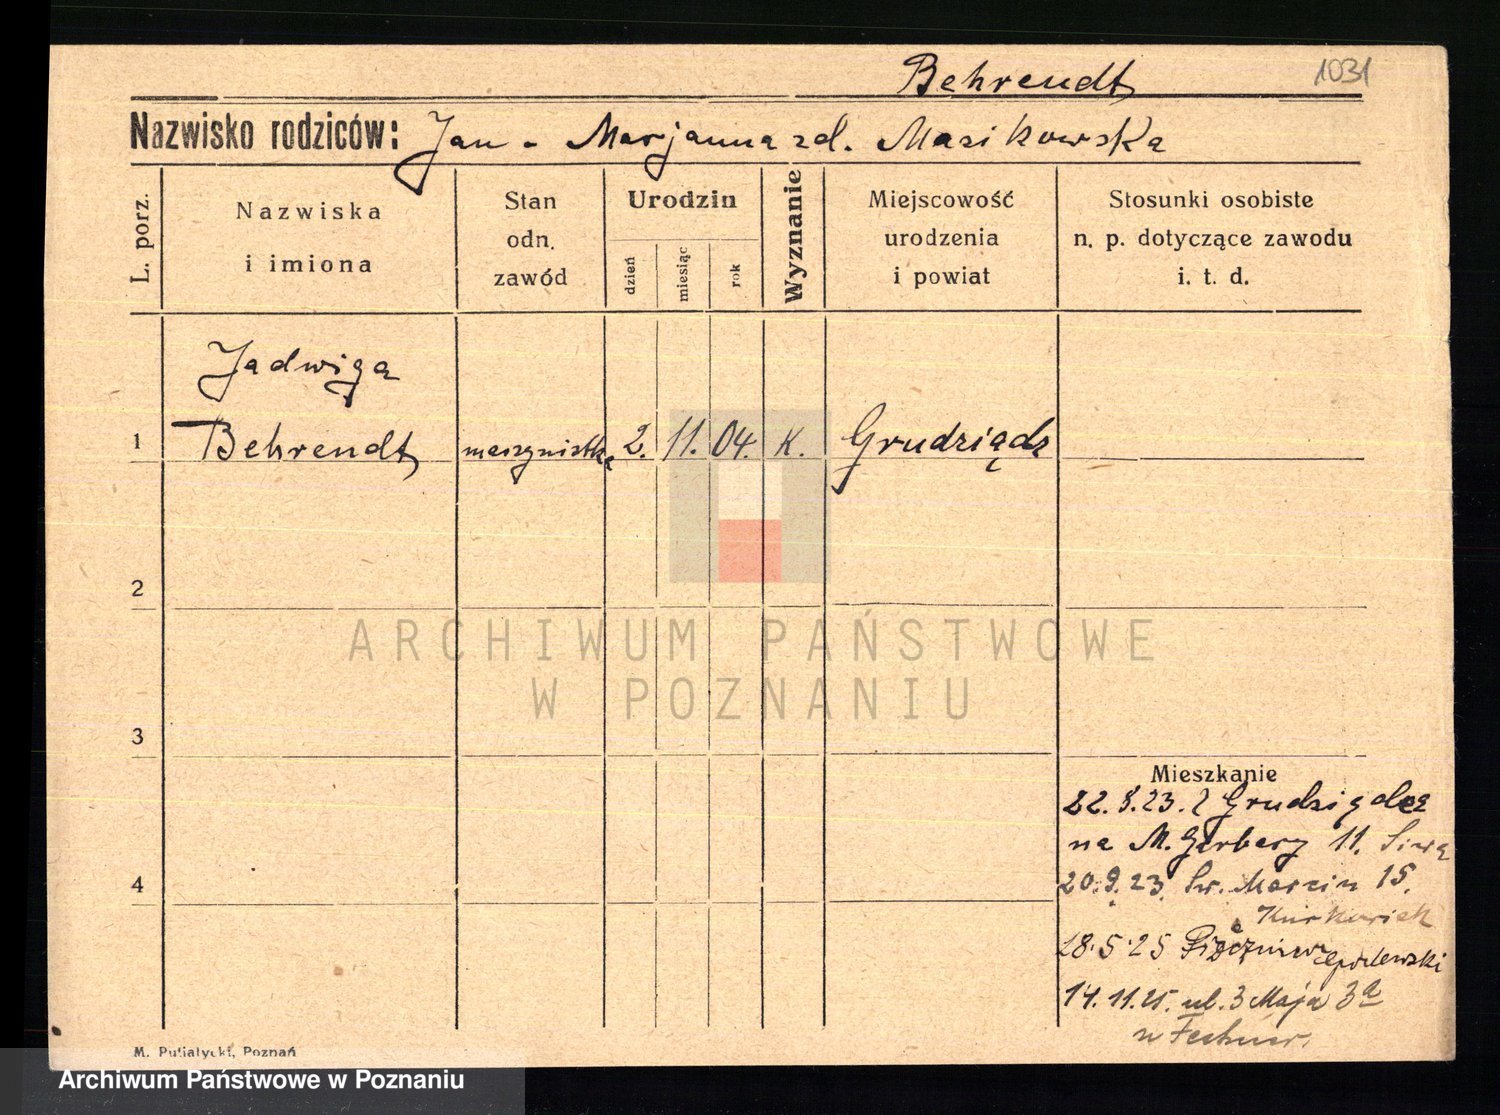 Behrendt
1031
Nazwisko rodziców: Jan - Marjanna zd. Masikowska
L. porz.
Nazwiska
i imiona
Stan
odn.
zawód
Urodzin
dzień
miesiąc
rok
Wyznanie
Miejscowość
urodzenia
i powiat
Stosunki osobiste
n. p. dotyczące zawodu
i. t. d.
Jadwiga
1 Behrendt maszynistka 2. 11. 04. K. Grudziądz
2
ARCHIWUM PAŃSTWOWE
W POZNANIU
3
4
Mieszkanie
22. 8. 23. z Grudziądza
na M. Garbary 11.
20. 9. 23. Św. Marcin 15.
28. 5. 25
14. 11. 25. ul. 3 Maja 3a
M. Putiatycki, Poznań
Archiwum Państwowe w Poznaniu